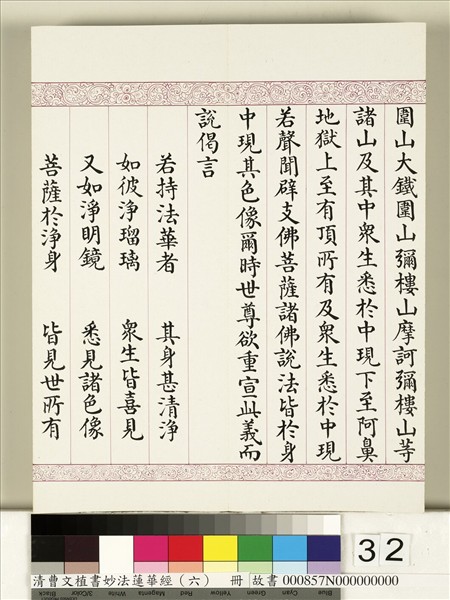 圍山大鐵圍山彌樓山摩訶彌樓山等
諸山及其中衆生悉於中現下至阿鼻
地獄上至有頂所有及衆生悉於中現
若聲聞辟支佛菩薩諸佛說法皆於身
中現其色像爾時世尊欲重宣此義而
說偈言
若持法華者 其身甚清淨
如彼淨瑠璃 衆生皆喜見
又如淨明鏡 悉見諸色像
菩薩於淨身 皆見世所有
32
清曹文植書妙法蓮華經(六) 冊 故書 000857N000000000
Black 3/Color White Magenta Red Yellow Green Cyan Blue